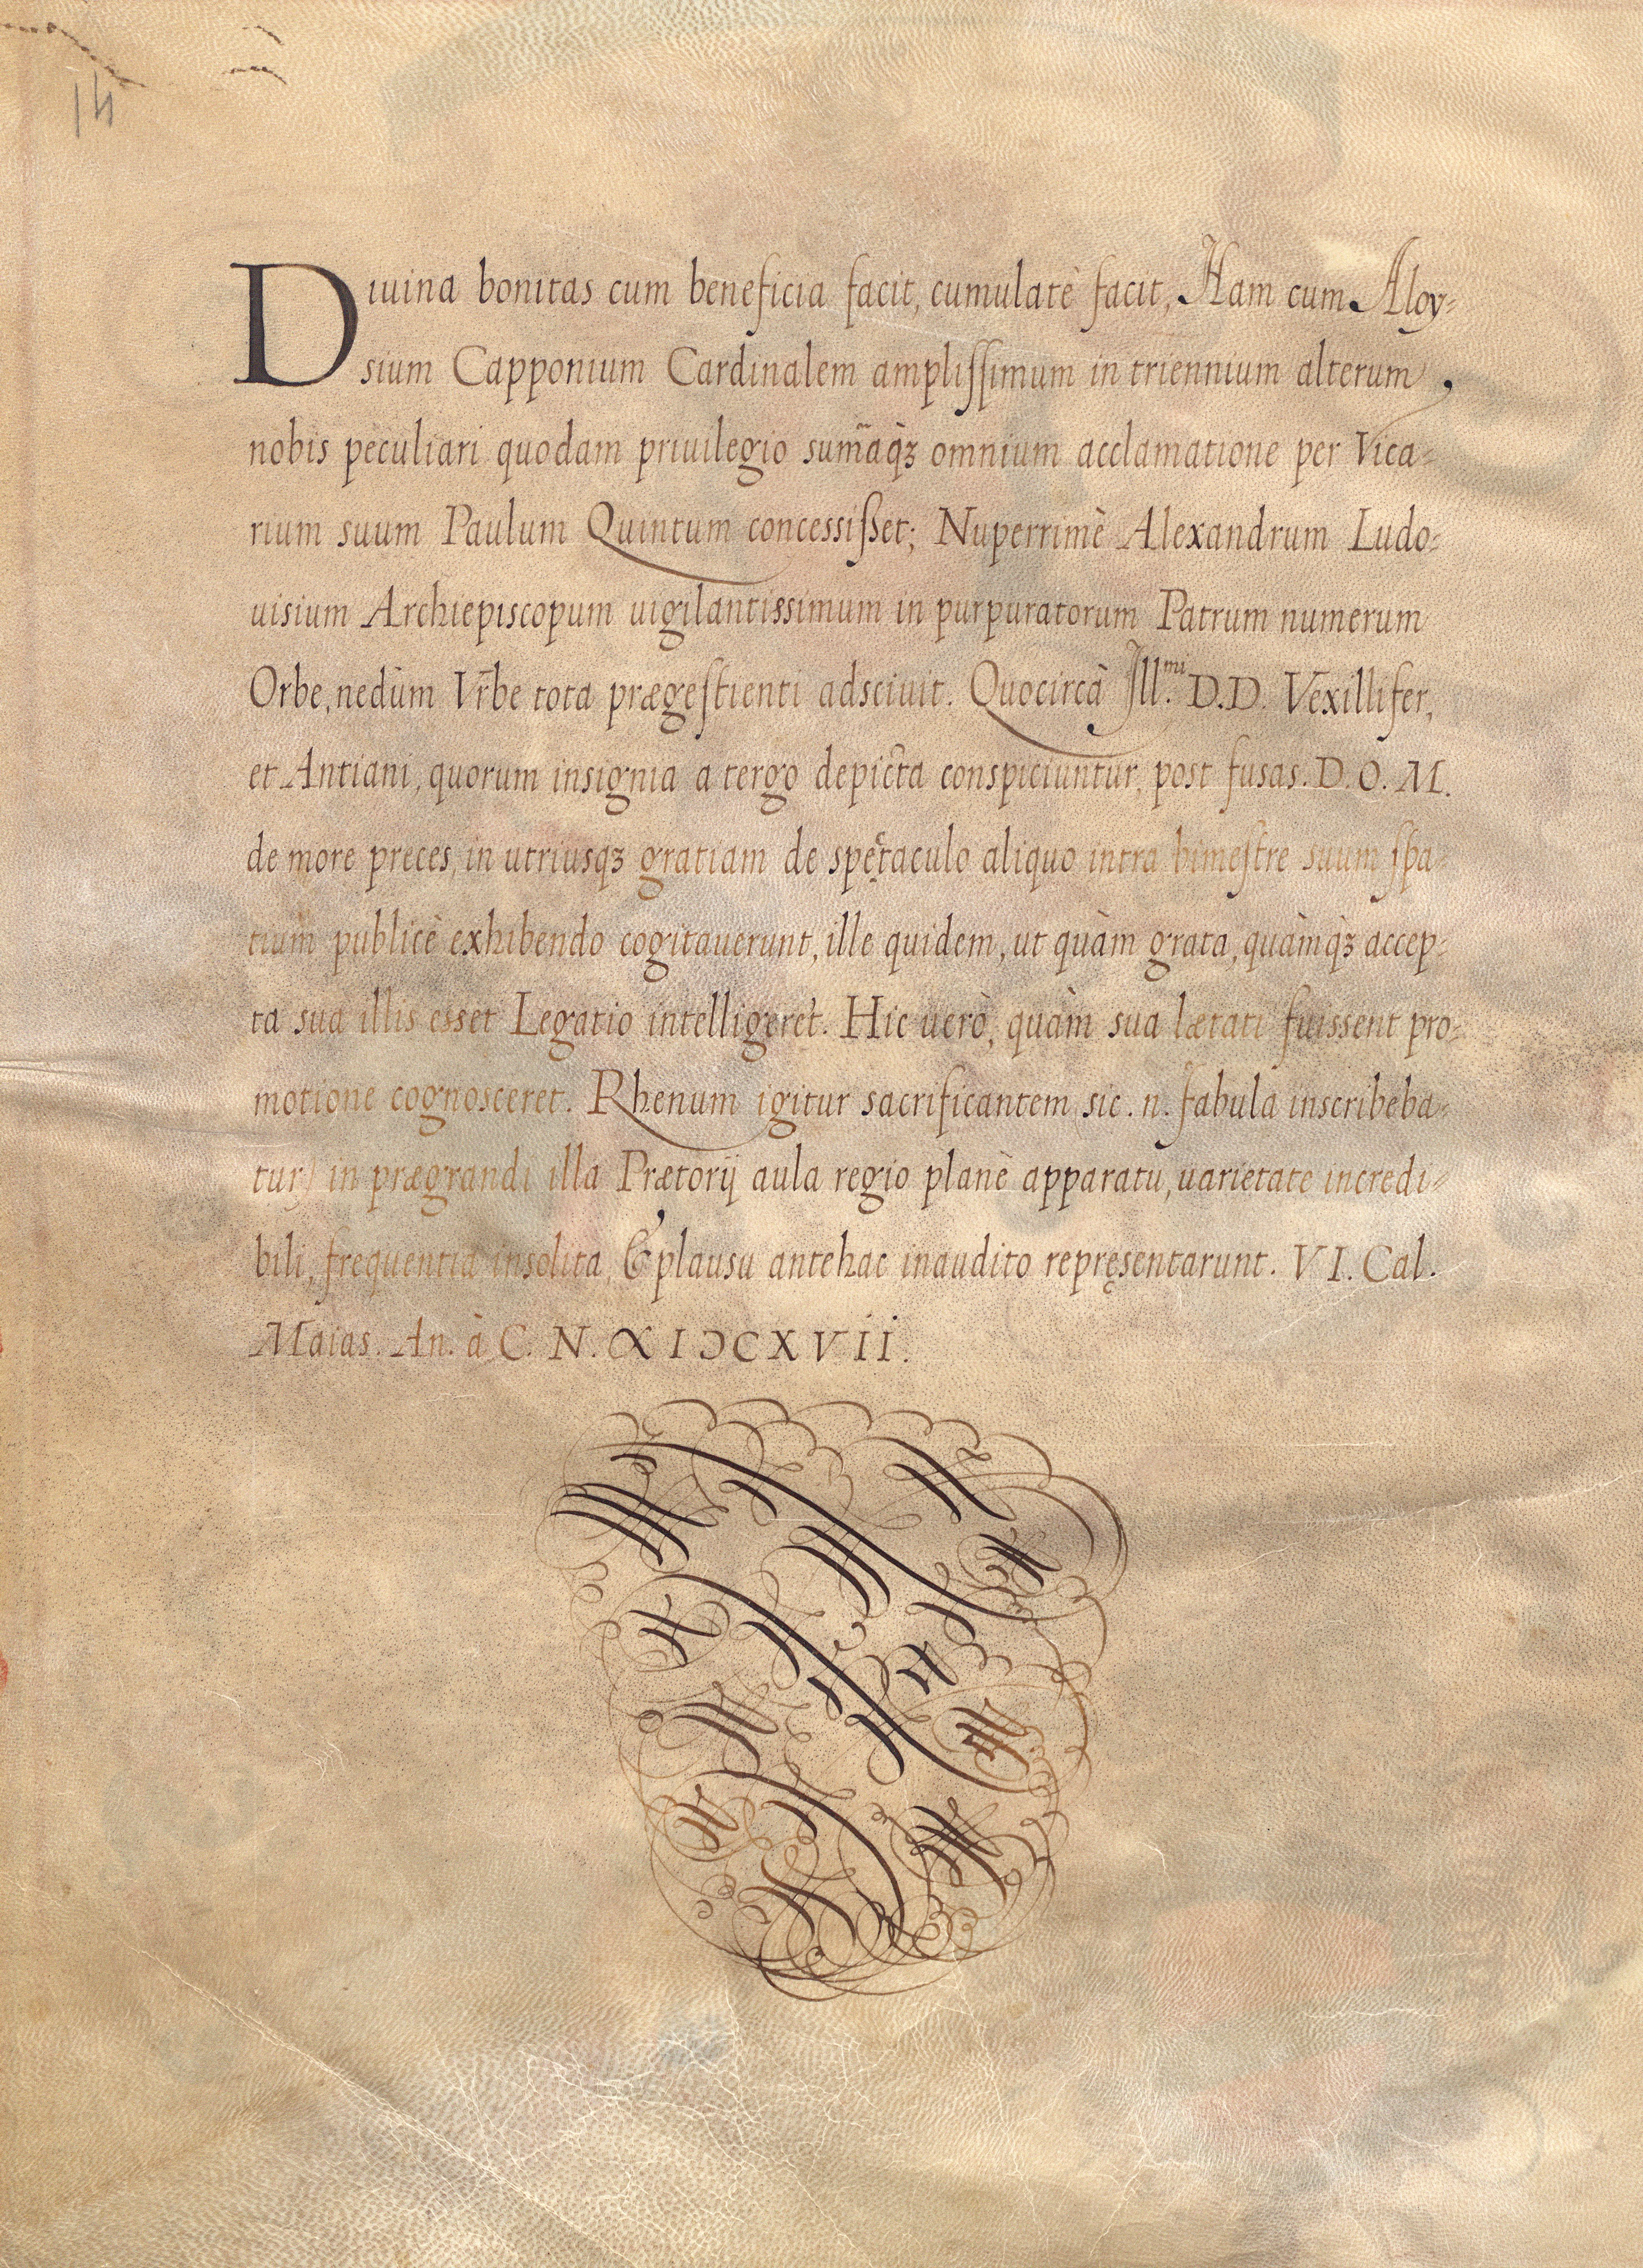 14
Diuina bonitas cum beneficia facit, cumulatè facit, Nam cum Aloy=
sium Capponium Cardinalem ampliſſimum in triennium alterum,
nobis peculiari quodam priuilegio sum̃aq̀ꝫ omnium acclamatione per Vica=
rium suum Paulum Quintum concessiſset; Nuperrimè Alexandrum Ludo=
uisium Archiepiscopum uigilantissimum in purpuratorum Patrum numerum
Orbe, nedùm Vrbe tota prægeſtienti adsciuit. Quocircà Ill.mi D.D. Vexillifer,
et Antiani, quorum insignia a tergo depicta conspiciuntur, post fusas. D. O. M.
de more preces, in utriusqꝫ gratiam de spęctaculo aliquo intra bimeſtre suum ſpa=
tium publicè exhibendo cogitauerunt, ille quidem, ut quàm grata, quàmq̀ꝫ accep=
ta sua illis esset Legatio intelligeret. Hic uerò, quàm sua lætati fuissent pro=
motione cognosceret. Rhenum igitur sacrificantem sic. n. fabula inscribeba=
tur) in prægrandi illa Prætorij aula regio planè apparatu, uarietate incredi=
bili, frequentia insolita, & plausu antehac inaudito repręsentarunt. VI. Cal.
Maias. An. à C. N. ∝ I Ɔ C X V i i.